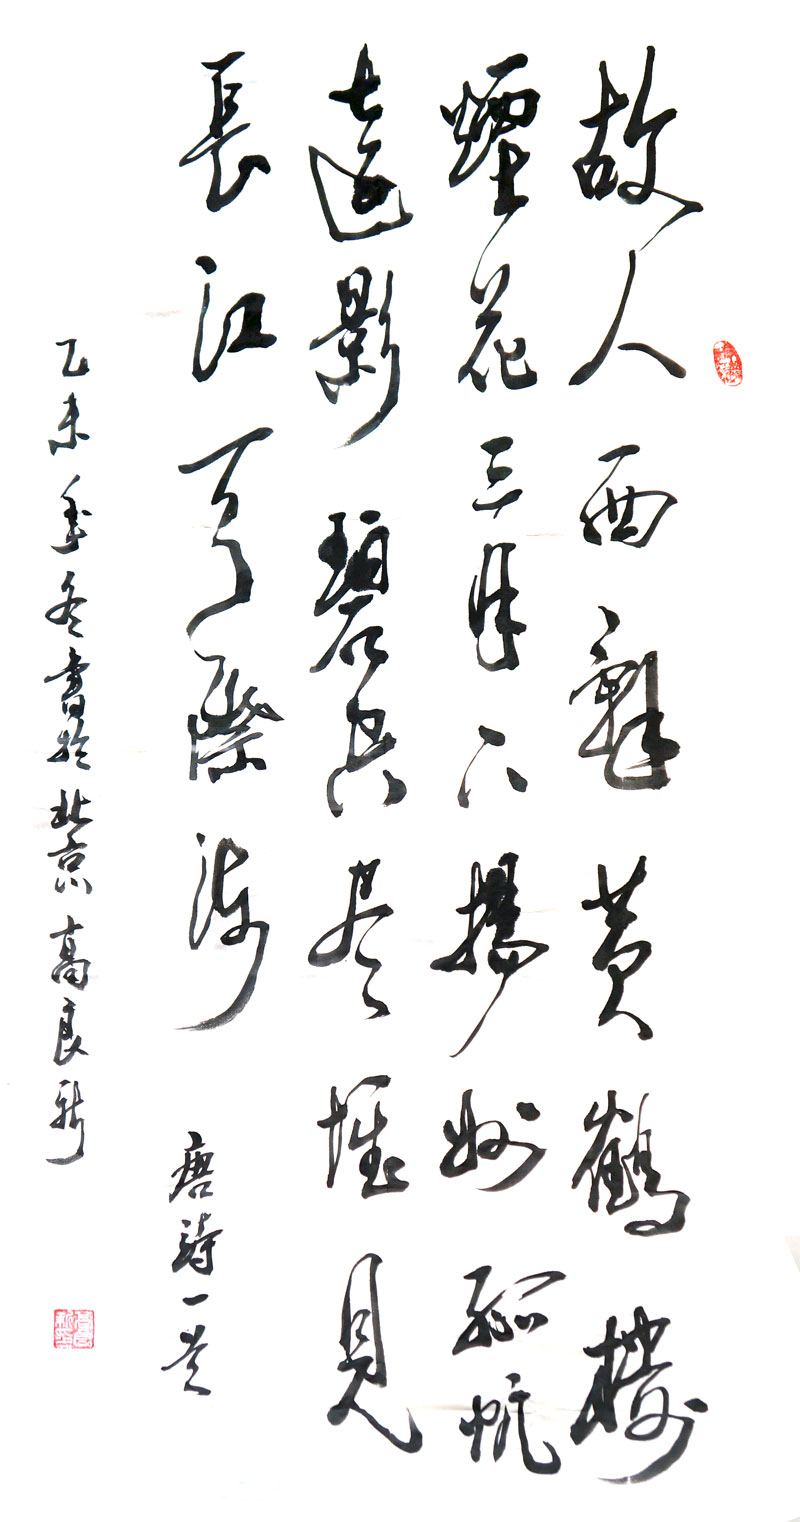 故人西辭黄鶴樓
煙花三月下揚州孤帆
遠影碧空尽惟見
長江天際流 唐詩一首
乙未年冬書於北京高良新